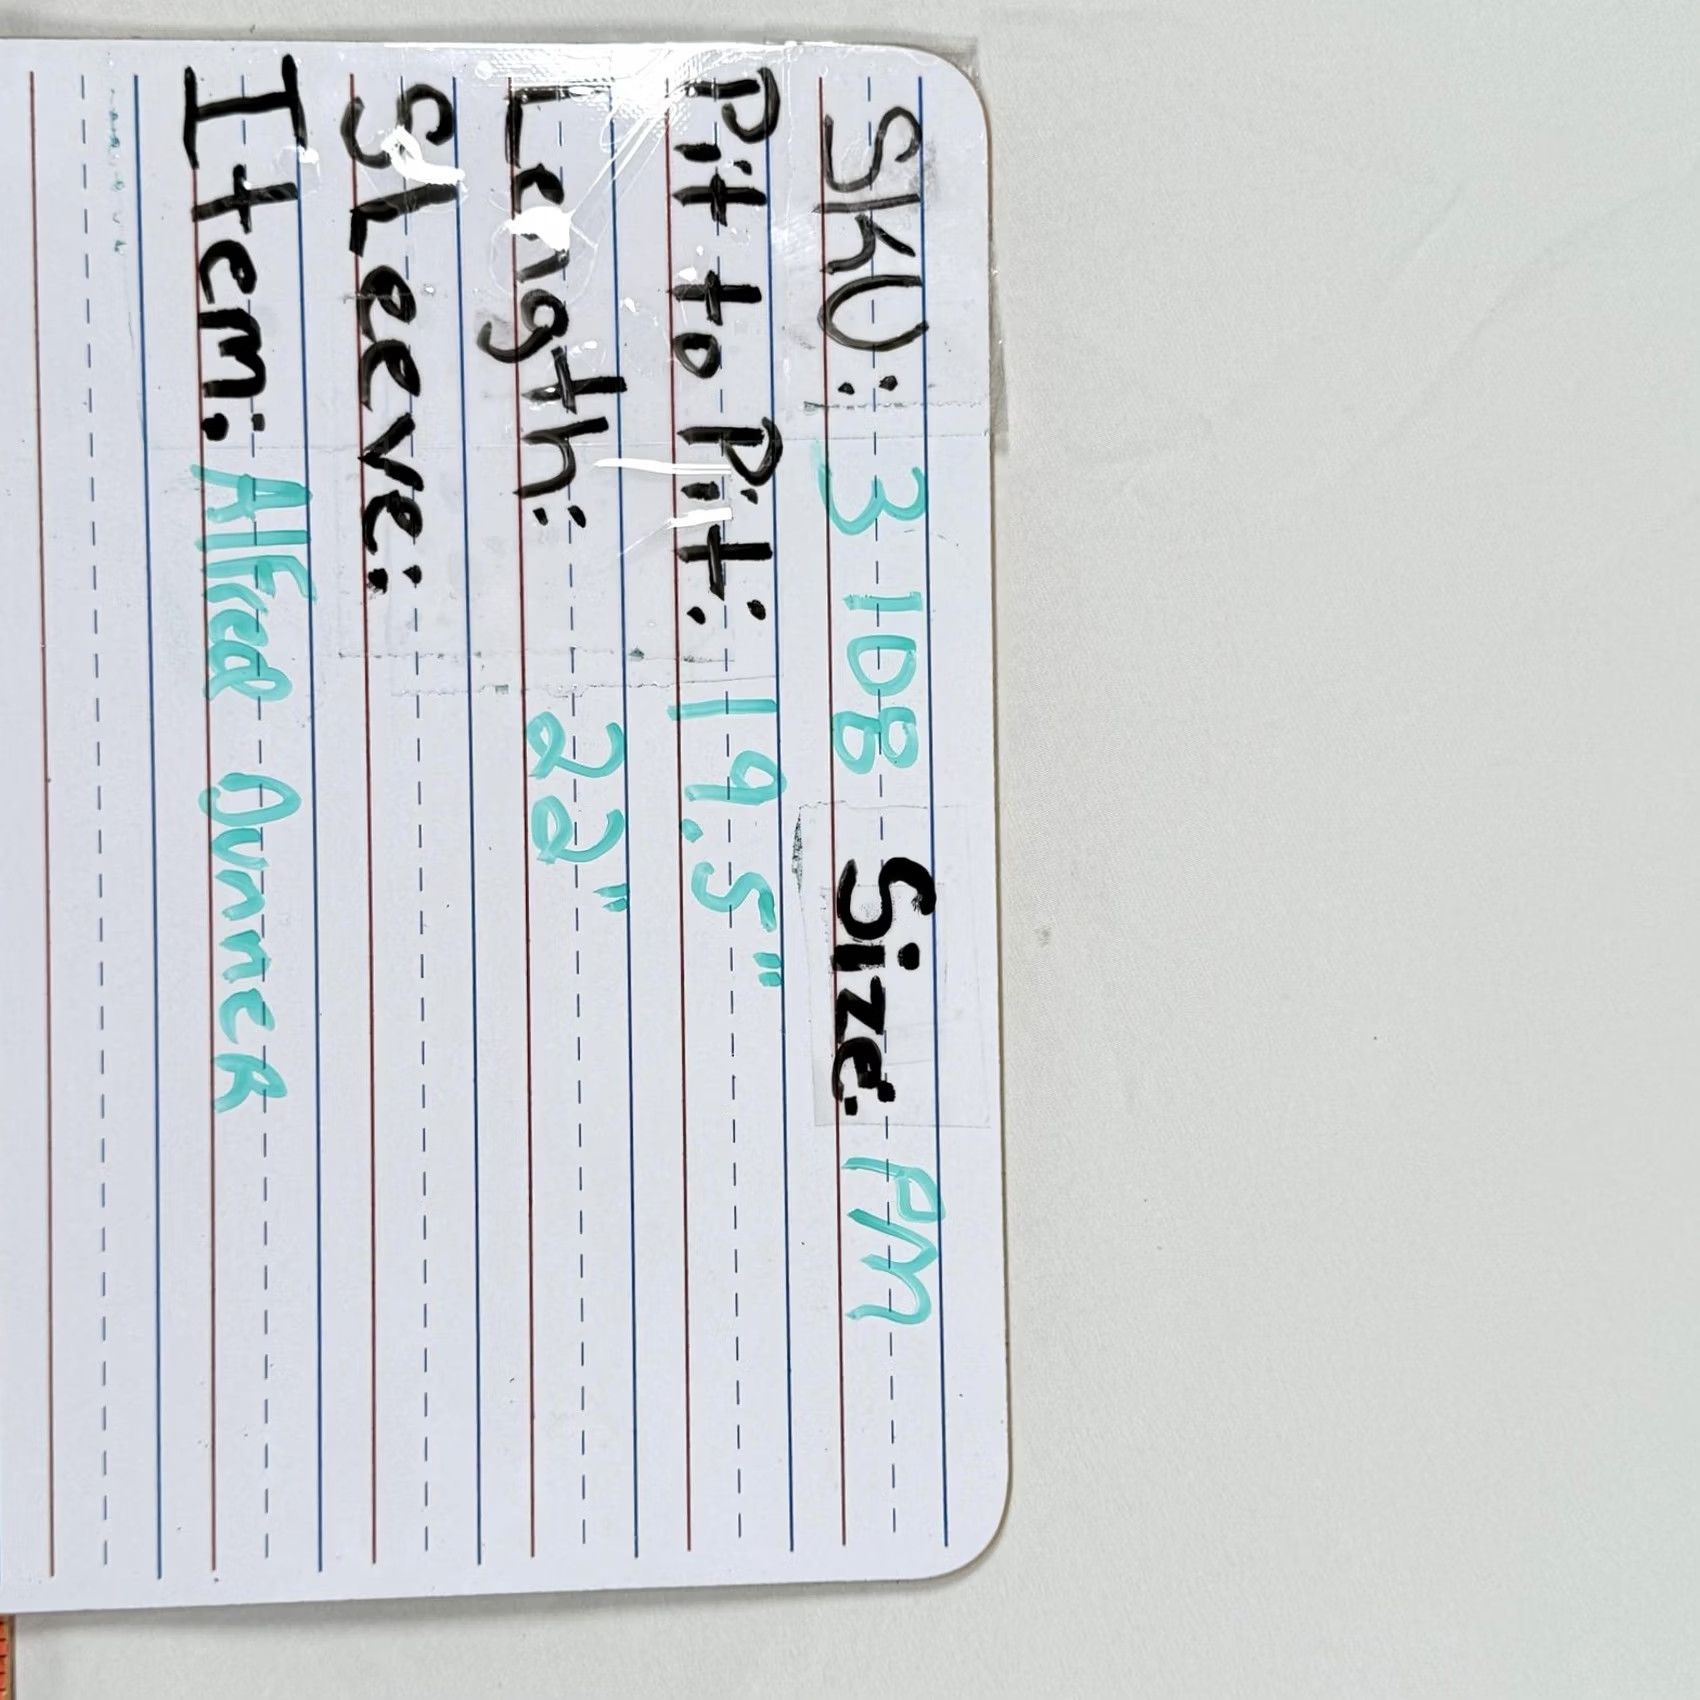 SKU: 3 1DB Size: PM
Pit to Pit: 19.5"
Length: 22"
Sleeve:
Item: Alfred Dunner